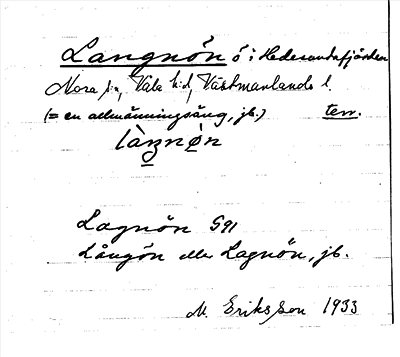 Langnön ö i Hedesundafjärden
Nora sn, Våla hd, Västmanlands l.
(= en allmänningsäng, jb.) terr.
làŋnø̀n
Lagnön S91
Långön eller Lagnön, jb.
M. Eriksson 1933